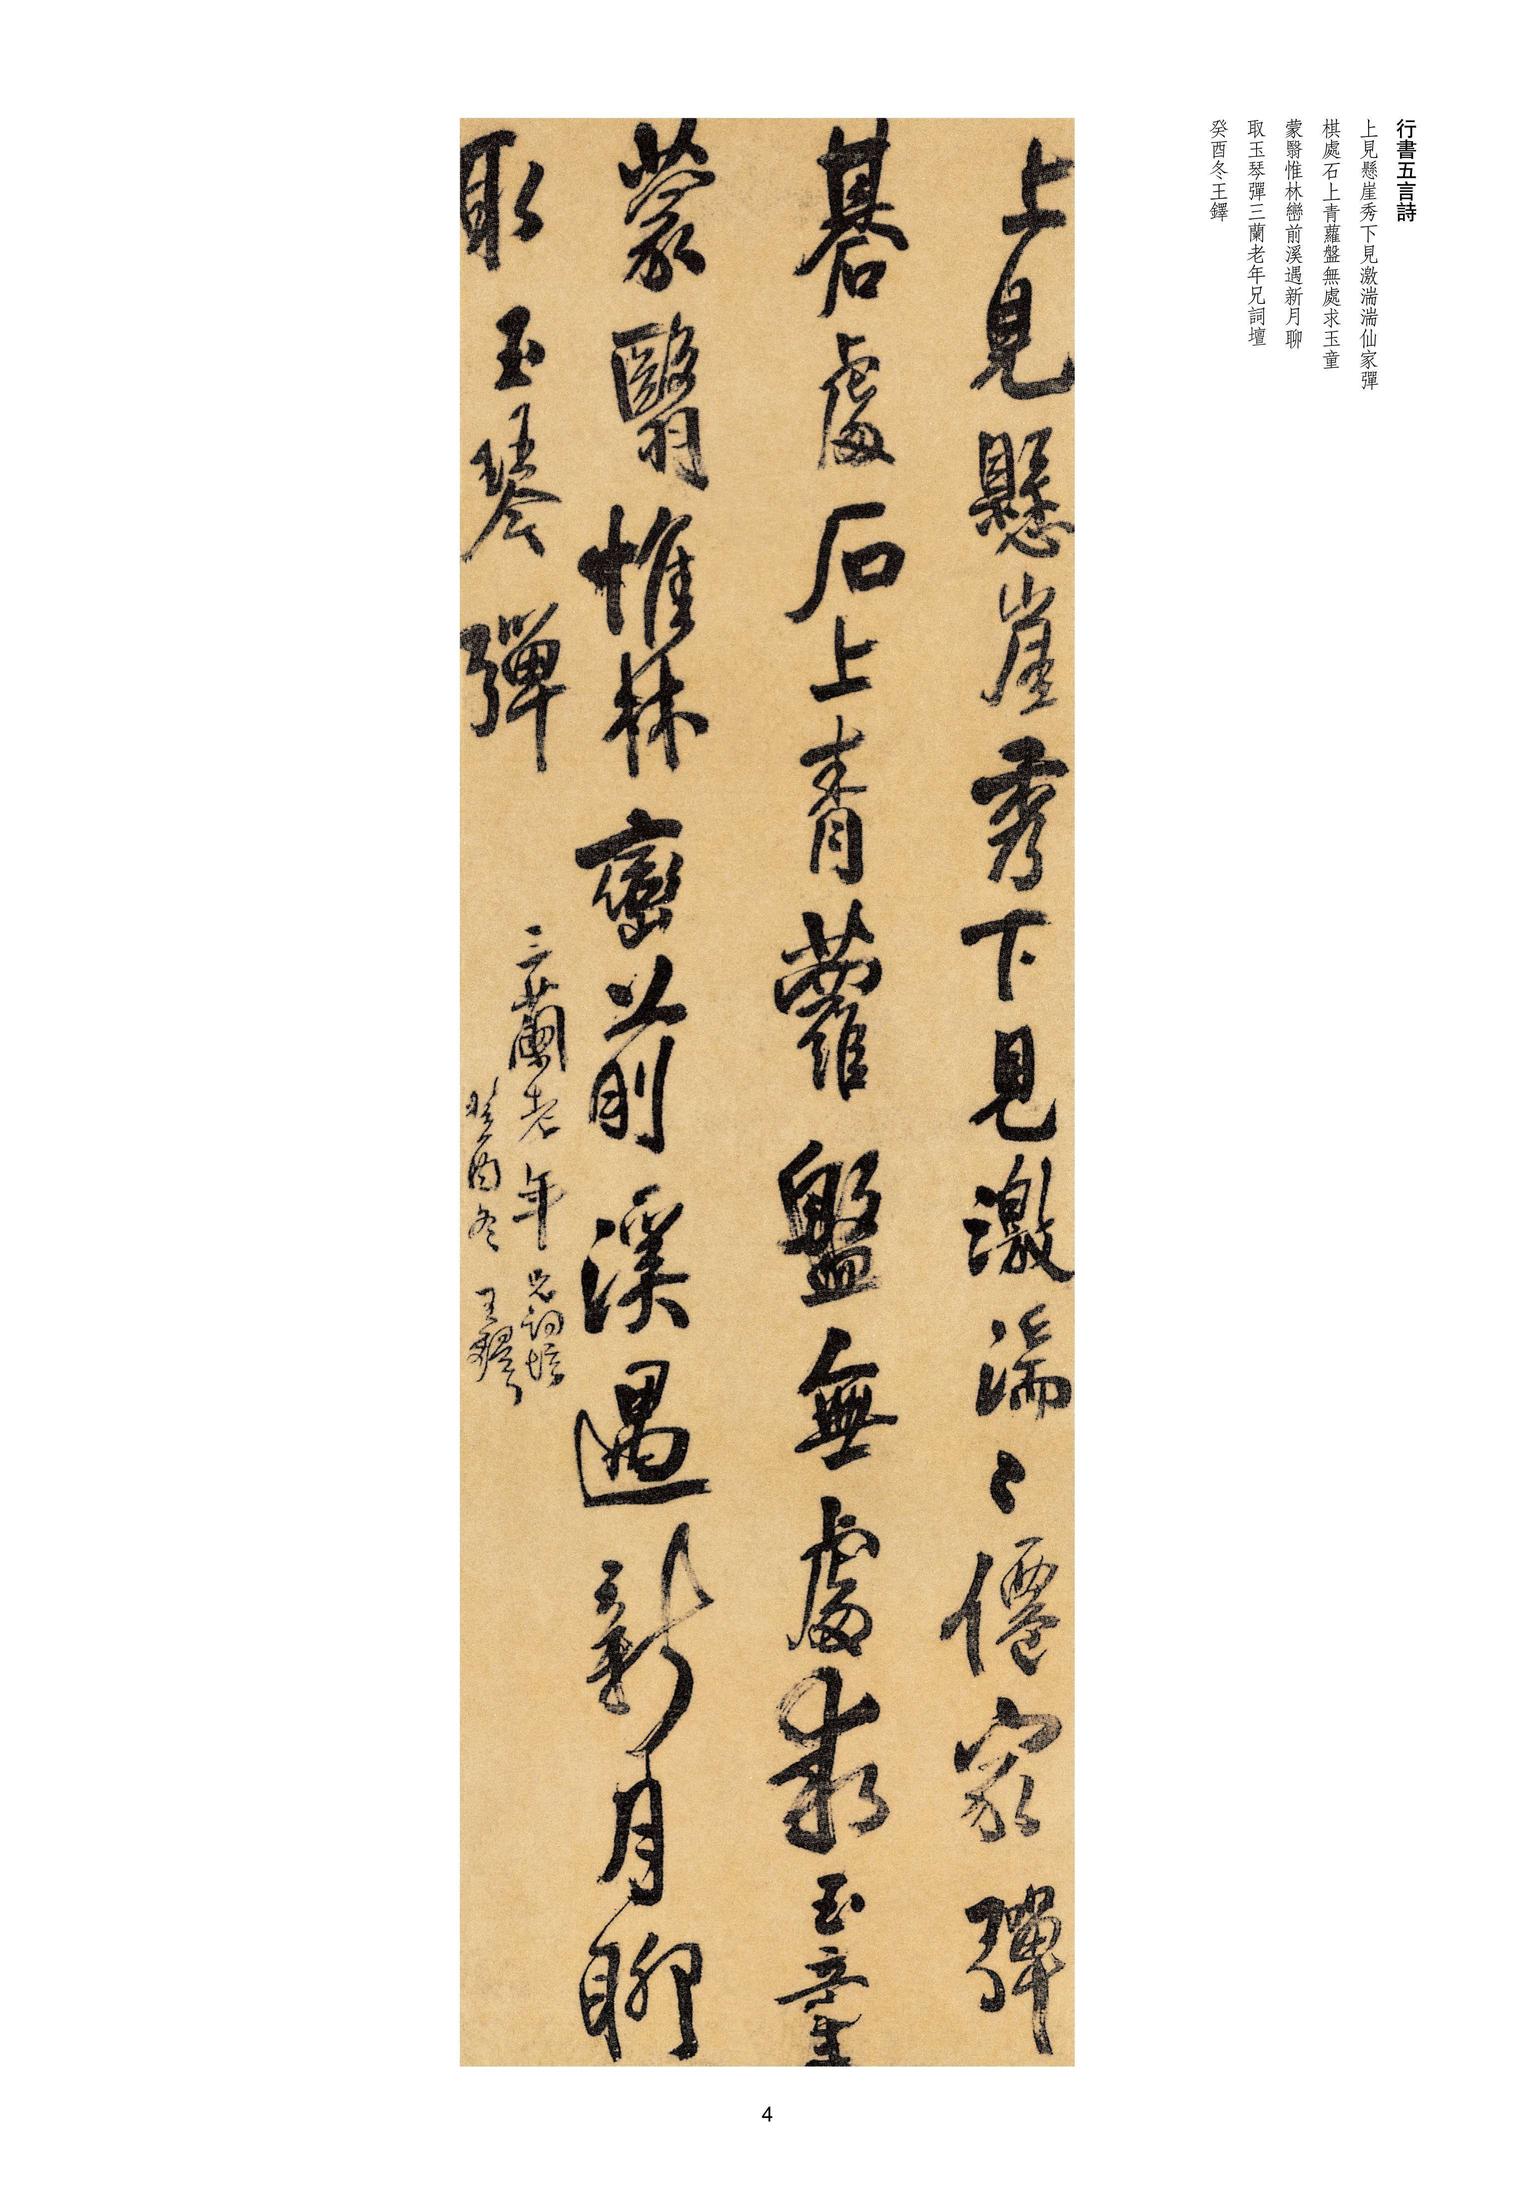 行書五言詩
上見懸崖秀下見激湍湍仙家彈
棋處石上青蘿盤無處求玉童
蒙翳惟林巒前溪遇新月聊
取玉琴彈三蘭老年兄詞壇
癸酉冬王鐸
上見懸崖秀下見激湍〻僊家彈
碁處石上青蘿盤無處求玉童
蒙翳惟林巒前溪遇新月聊
取玉琴彈
三蘭老年兄詞壇
癸酉冬王鐸
4